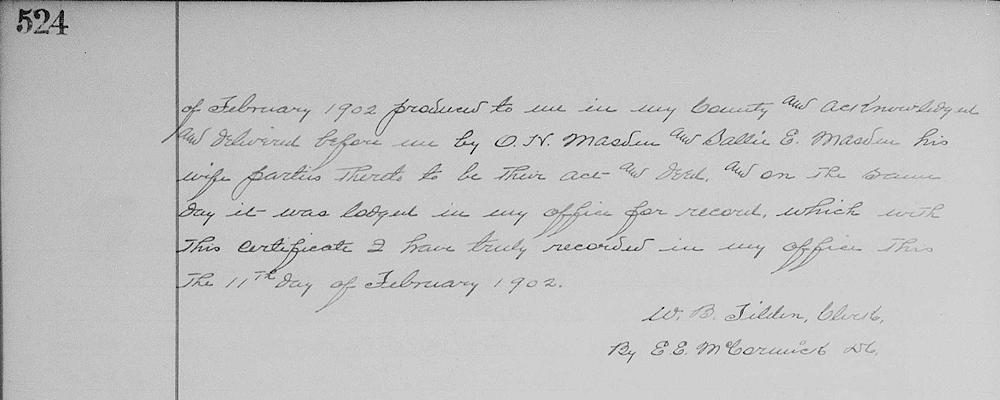 524
of February 1902 produced to me in my County and acknowledged
and delivered before me by O. N. Masden and Sallie E. Masden his
wife parties thereto to be their act and deed, and on the same
day it was lodged in my office for record, which with
this certificate I have truly recorded in my office this
the 11th day of February 1902.
W. B. Tilden, Clerk,
By E. E. McCormick DC.